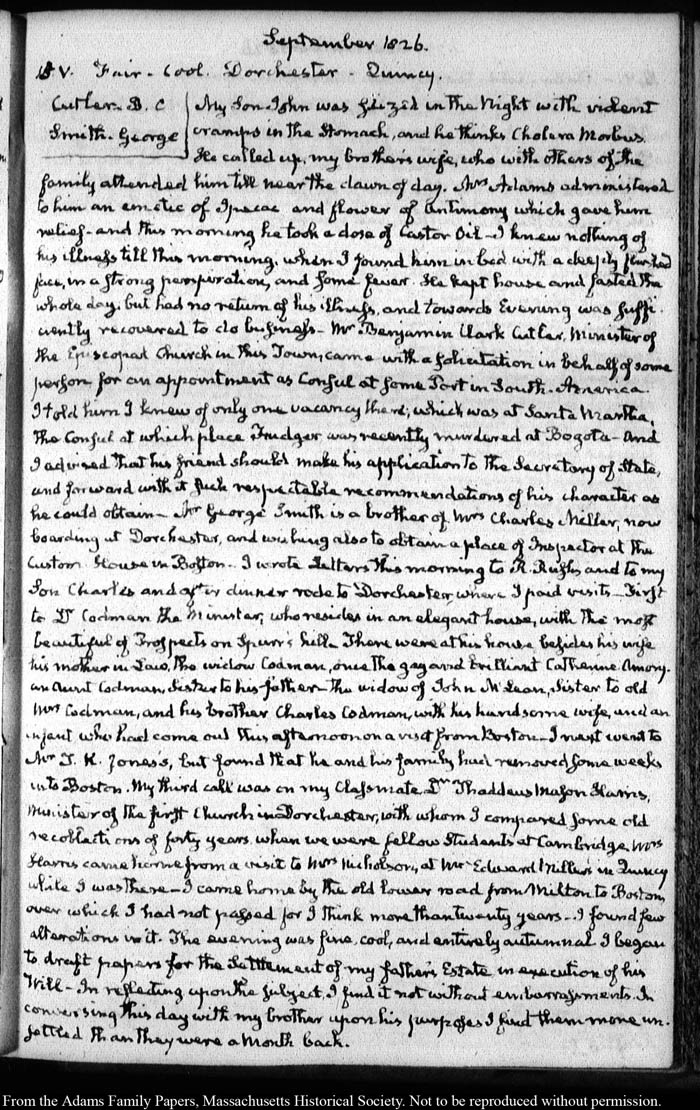 September 1826.
V. Fair - Cool. Dorchester - Quincy.
Cutler. B. C
Smith. George
My Son John was seized in the Night with violent
cramps in the Stomach, and he thinks Cholera Morbus.
He called up, my brother's wife, who with others of the
family attended him till near the dawn of day. Mrs Adams administered
to him an emetic of Ipecac and flower of Antimony which gave him
relief - and this morning he took a dose of Castor Oil - I knew nothing of
his illness till this morning, when I found him in bed with a deeply flushed
face, in a strong perspiration, and some fever. He kept house and fasted the
whole day, but had no return of his illness, and towards Evening was suffi-
ciently recovered to do business - Mr Benjamin Clark Cutler, Minister of
the Episcopal Church in this Town, came with a solicitation in behalf of some
person for an appointment as Consul at some Port in South-America.
I told him I knew of only one vacancy there, which was at Santa Martha,
the Consul at which place Trudger was recently murdered at Bogota - And
I advised that his friend should make his application to the Secretary of State,
and forward with it such respectable recommendations of his character as
he could obtain - Mr George Smith is a brother of Mrs Charles Miller, now
boarding at Dorchester, and wishing also to obtain a place of Inspector at the
Custom House in Boston - I wrote Letters this morning to R. Rush, and to my
Son Charles and after dinner rode to Dorchester, where I paid visits - First
to Dr Codman the Minister, who resides in an elegant house, with the most
beautiful of Prospects on Spurr's hill - There were at his house besides his wife
his mother in Law, the widow Codman, once the gay and brilliant Catherine Amory.
an Aunt Codman, Sister to his father - the widow of John McLean, Sister to old
Mrs Codman, and his brother Charles Codman, with his handsome wife, and an
infant who had come out this afternoon on a visit from Boston - I next went to
Mr T. K. Jones's, but found that he and his family had removed some weeks
into Boston. My third call was on my Classmate Dr Thaddeus Mason Harris,
Minister of the first Church in Dorchester, with whom I compared some old
recollections of forty years, when we were fellow Students at Cambridge. Mrs
Harris came home from a visit to Mrs Nicholson, at Mr Edward Miller's in Quincy
while I was there - I came home by the old lower road from Milton to Boston,
over which I had not passed for I think more than twenty years - I found few
alterations in it. The evening was fine, cool, and entirely autumnal. I began
to draft papers for the Settlement of my father's Estate in execution of his
Will - In reflecting upon the subject, I find it not without embarrassments. In
conversing this day with my brother upon his purposes I find them more un-
settled than they were a Month back.
From the Adams Family Papers, Massachusetts Historical Society. Not to be reproduced without permission.